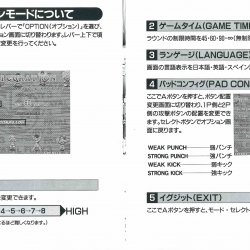 ンモードについて
レバーで「OPTION(オプション)」を選び、
ション画面に切り替わります。レバー上下で項
変更を行ってください。
変更できます。
4-5-6-7-8 HIGH
るほど難しくなります。)
2 ゲームタイム(GAME TIM
ラウンドの制限時間を45・60・80・∞
3 ランゲージ(LANGUAGE)
画面の言語表示を日本語・英語・スペイン
4 パッドコンフィグ(PAD CON
ここでAボタンを押すと、ボタン配置
変更画面に切り替わります。1P側と2P
側の攻撃ボタンの配置を変更できま
す。セレクトボタンでオプション画面
に戻ります。
WEAK PUNCH 弱パンチ
STRONG PUNCH 強パンチ
WEAK KICK 弱キック
STRONG KICK 強キック
5 イグジット(EXIT)
ここでAボタンを押すと、モード・セレクト